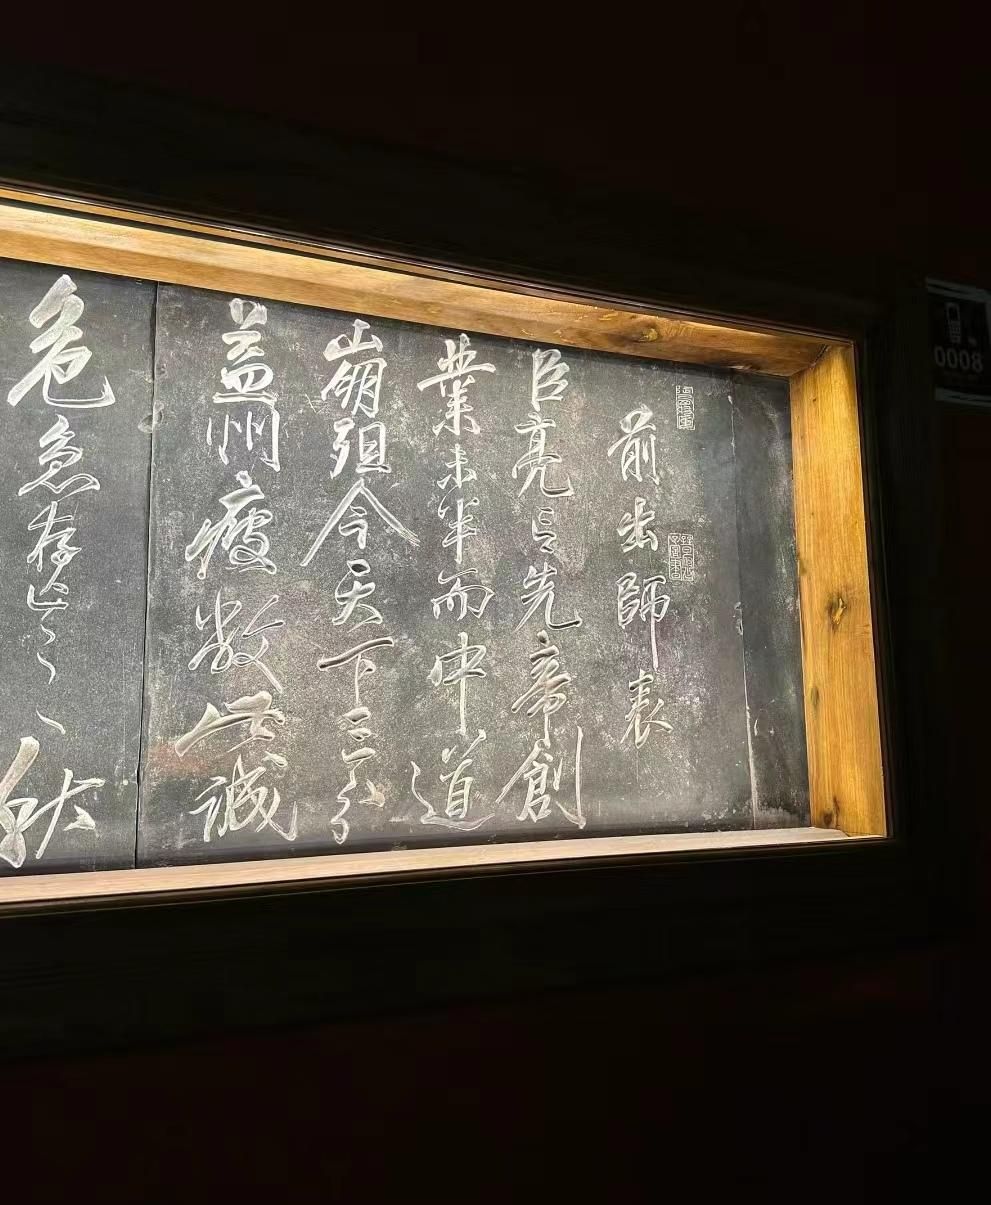 前出師表
臣亮言先帝創
業未半而中道
崩殂今天下三分
益州疲敝此誠
危急存亡之秋
0008